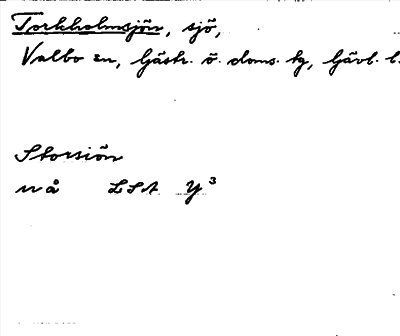 Torkholmsjön, sjö,
Valbo sn, Gästr. ö. doms. hg, Gävl. l.
Storsjön
n å LSA Y³